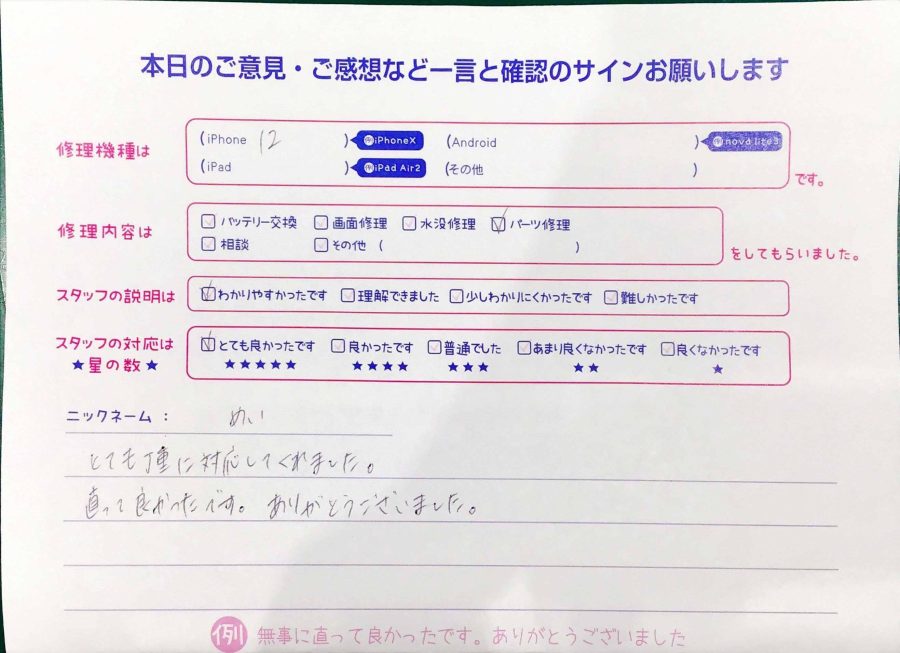 本日のご意見・ご感想など一言と確認のサインお願いします
修理機種は
(iPhone 12 ) iPhoneX (Android ) nova lite3
(iPad ) iPad Air2 (その他 ) です。
修理内容は
バッテリー交換 画面修理 水没修理 パーツ修理
相談 その他 ( ) をしてもらいました。
スタッフの説明は わかりやすかったです 理解できました 少しわかりにくかったです 難しかったです
スタッフの対応は とても良かったです 良かったです 普通でした あまり良くなかったです 良くなかったです
★星の数★ ★★★★★ ★★★★ ★★★ ★★ ★
ニックネーム: めい
とても丁重に対応してくれました。
直って良かったです。ありがとうございました。
例 無事に直って良かったです。ありがとうございました